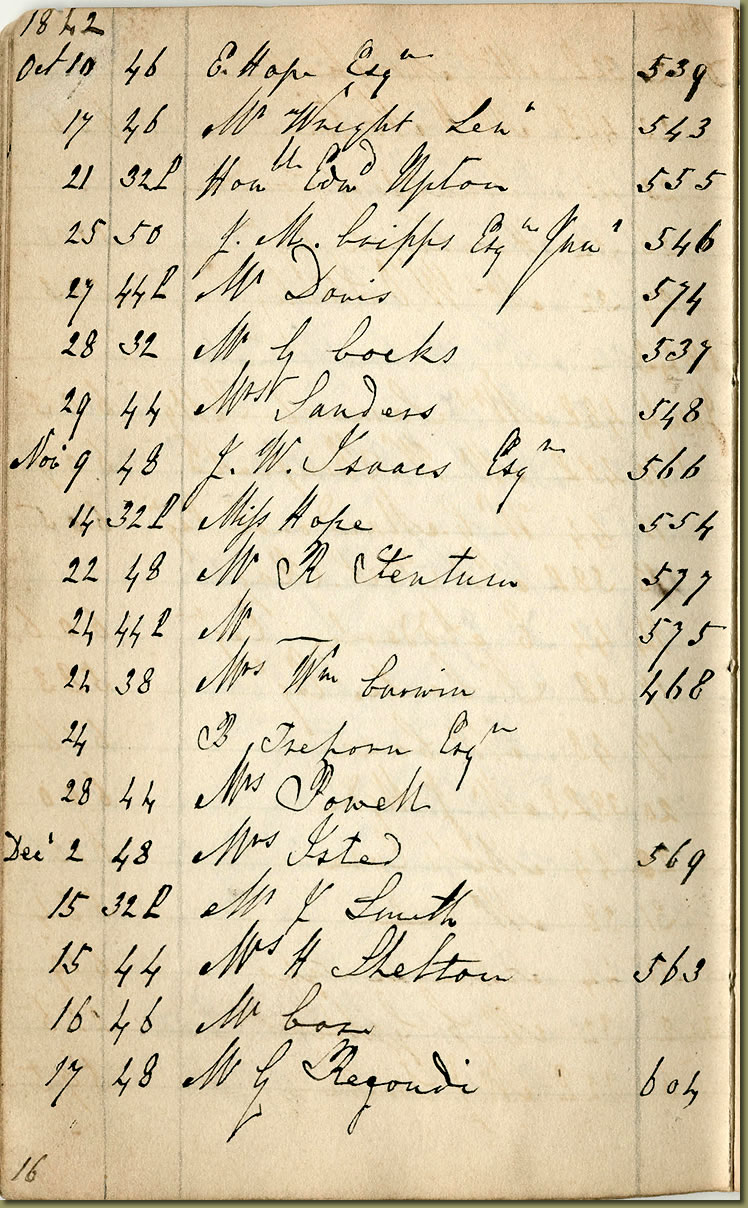 1842
Oct 10 46 E. Hope Esqr 539
17 46 Mr Wright Senr 543
21 32P Honble Edwd Upton 555
25 50 J. M. Cripps Esqre Junr 546
27 44P Mr Davis 574
28 32 Mr G Cocks 537
29 44 Mrs Sanders 548
Nov 9 48 J. W. Isaacs Esqr 566
14 32P Miss Hope 554
22 48 Mr R Stentum 577
24 44P Mr — 575
24 38 Mrs Wm 468
24 B Treborn Esqr
28 44 Mrs Powell
Decr 2 48 Mrs Isted 569
15 32P Mr J Smith
15 44 Mrs H Shelton 563
16 46 Mr Case
17 48 Mr G Regondi 604
16